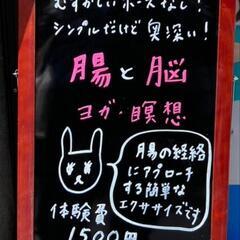 むずかしいポーズなし!
シンプルだけど奥深い!
腸と脳
ヨガ・瞑想
腸の経絡
にアプローチ
する簡単な
エクササイズです
体験費
1500円